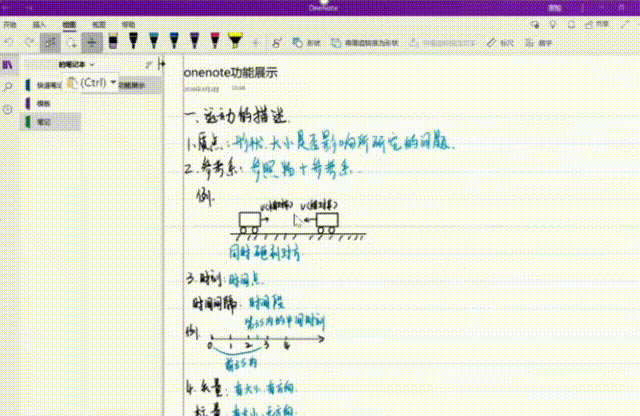 OneNote
开始 插入 绘图 视图 帮助
共享
形状 将墨迹转换为形状 标尺 数学
的笔记本
快速笔记 功能展示
(Ctrl)
模板
笔记
onenote功能展示
一.运动的描述
1.质点:形状.大小是否影响所研究的问题.
2.参考系:参照物+参考系.
例.
同时碰到对方.
3.时刻:时间点
时间间隔:时间段
第3S内的中间时刻
例.
0 1 2 3 4
前3S内
4.矢量:有大小.有方向.
标量:有大小.无方向.